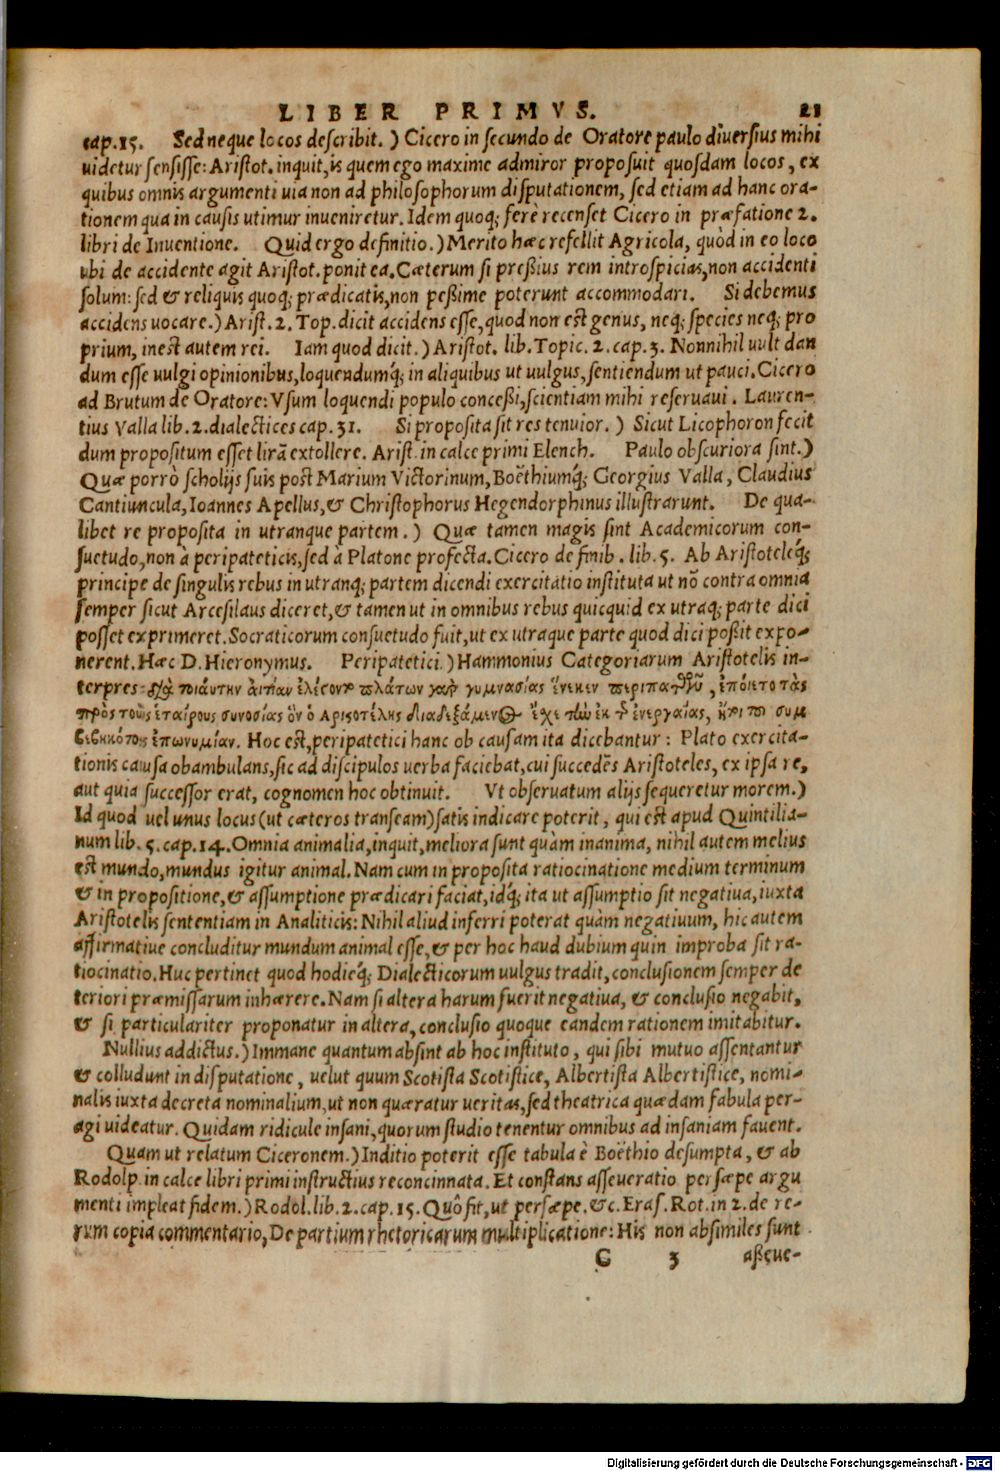 LIBER PRIMVS. 21
cap.15. Sed neque locos describit. ) Cicero in secundo de Oratore paulo diuersius mihi
uidetur sensisse: Aristot. inquit, is quem ego maxime admiror proposuit quosdam locos, ex
quibus omnis argumenti uia non ad philosophorum disputationem, sed etiam ad hanc ora-
tionem qua in causis utimur inueniretur. Idem quoq; ferè recenset Cicero in præfatione 2.
libri de Inuentione. Quid ergo definitio.) Merito hæc refellit Agricola, quòd in eo loco
ubi de accidente agit Aristot. ponit ea. Cæterum si preßius rem introspicias, non accidenti
solum: sed & reliquis quoq; prædicatis, non peßime poterunt accommodari. Si debemus
accidens uocare.) Arist. 2. Top. dicit accidens esse, quod non est genus, neq; species neq; pro
prium, inest autem rei. Iam quod dicit.) Aristot. lib. Topic. 2. cap. 3. Nonnihil uult dan
dum esse uulgi opinionibus, loquendumq́; in aliquibus ut uulgus, sentiendum ut pauci. Cicero
ad Brutum de Oratore: Vsum loquendi populo conceßi, scientiam mihi reseruaui. Lauren-
tius Valla lib. 2. dialectices cap. 31. Si proposita sit res tenuior. ) Sicut Licophoron fecit
dum propositum esset lirã extollere. Arist. in calce primi Elench. Paulo obscuriora sint.)
Quæ porrò scholijs suis post Marium Victorinum, Boëthiumq́; Georgius Valla, Claudius
Cantiuncula, Ioannes Apellus, & Christophorus Hegendorphinus illustrarunt. De qua-
libet re proposita in utranque partem. ) Quæ tamen magis sint Academicorum con-
suetudo, non à peripateticis, sed à Platone profecta. Cicero de finib. lib. 5. Ab Aristoteleq́;
principe de singulis rebus in utranq; partem dicendi exercitatio instituta ut nõ contra omnia
semper sicut Arcesilaus diceret, & tamen ut in omnibus rebus quicquid ex utraq; parte dici
posset exprimeret. Socraticorum consuetudo fuit, ut ex utraque parte quod dici poßit expo-
nerent. Hæc D. Hieronymus. Peripatetici.) Hammonius Categoriarum Aristotelis in-
terpres: πλάτων γὰρ γυμνασίας ἕνεκεν, ἐποίετο τὰς
πρὸς τοὺς ἑταίρους συνοσίας ὃν ὁ ἀριστοτέλης διαδεξάμενος ἔχει τὼ ἐκ τ͂ ἐνεργαίας,
ἐπωνυμίαν. Hoc est, peripatetici hanc ob causam ita dicebantur: Plato exercita-
tionis causa obambulans, sic ad discipulos uerba faciebat, cui succedẽs Aristoteles, ex ipsa re,
aut quia successor erat, cognomen hoc obtinuit. Vt obseruatum alijs sequeretur morem.)
Id quod uel unus locus (ut cæteros transeam) satis indicare poterit, qui est apud Quintilia-
num lib. 5. cap. 14. Omnia animalia, inquit, meliora sunt quàm inanima, nihil autem melius
est mundo, mundus igitur animal. Nam cum in proposita ratiocinatione medium terminum
& in propositione, & assumptione prædicari faciat, idq́; ita ut assumptio sit negatiua, iuxta
Aristotelis sententiam in Analiticis: Nihil aliud inferri poterat quàm negatiuum, hic autem
affirmatiue concluditur mundum animal esse, & per hoc haud dubium quin improba sit ra-
tiocinatio. Huc pertinet quod hodieq́; Dialecticorum uulgus tradit, conclusionem semper de
teriori præmissarum inhærere. Nam si altera harum fuerit negatiua, & conclusio negabit,
& si particulariter proponatur in altera, conclusio quoque eandem rationem imitabitur.
Nullius addictus.) Immane quantum absint ab hoc instituto, qui sibi mutuo assentantur
& colludunt in disputatione, uelut quum Scotista Scotistice, Albertista Albertistice, nomi-
nalis iuxta decreta nominalium, ut non quæratur ueritas, sed theatrica quædam fabula per-
agi uideatur. Quidam ridicule insani, quorum studio tenentur omnibus ad insaniam fauent.
Quam ut relatum Ciceronem.) Inditio poterit esse tabula è Boëthio desumpta, & ab
Rodolp. in calce libri primi instructius reconcinnata. Et constans asseueratio persæpe argu
menti impleat fidem.) Rodol. lib. 2. cap. 15. Quô fit, ut persæpe. &c. Eras. Rot. in 2. de re-
rum copia commentario, De partium rhetoricarum multiplicatione: His non absimiles sunt
C 3 aßeue-
Digitalisierung gefördert durch die Deutsche Forschungsgemeinschaft - DFG